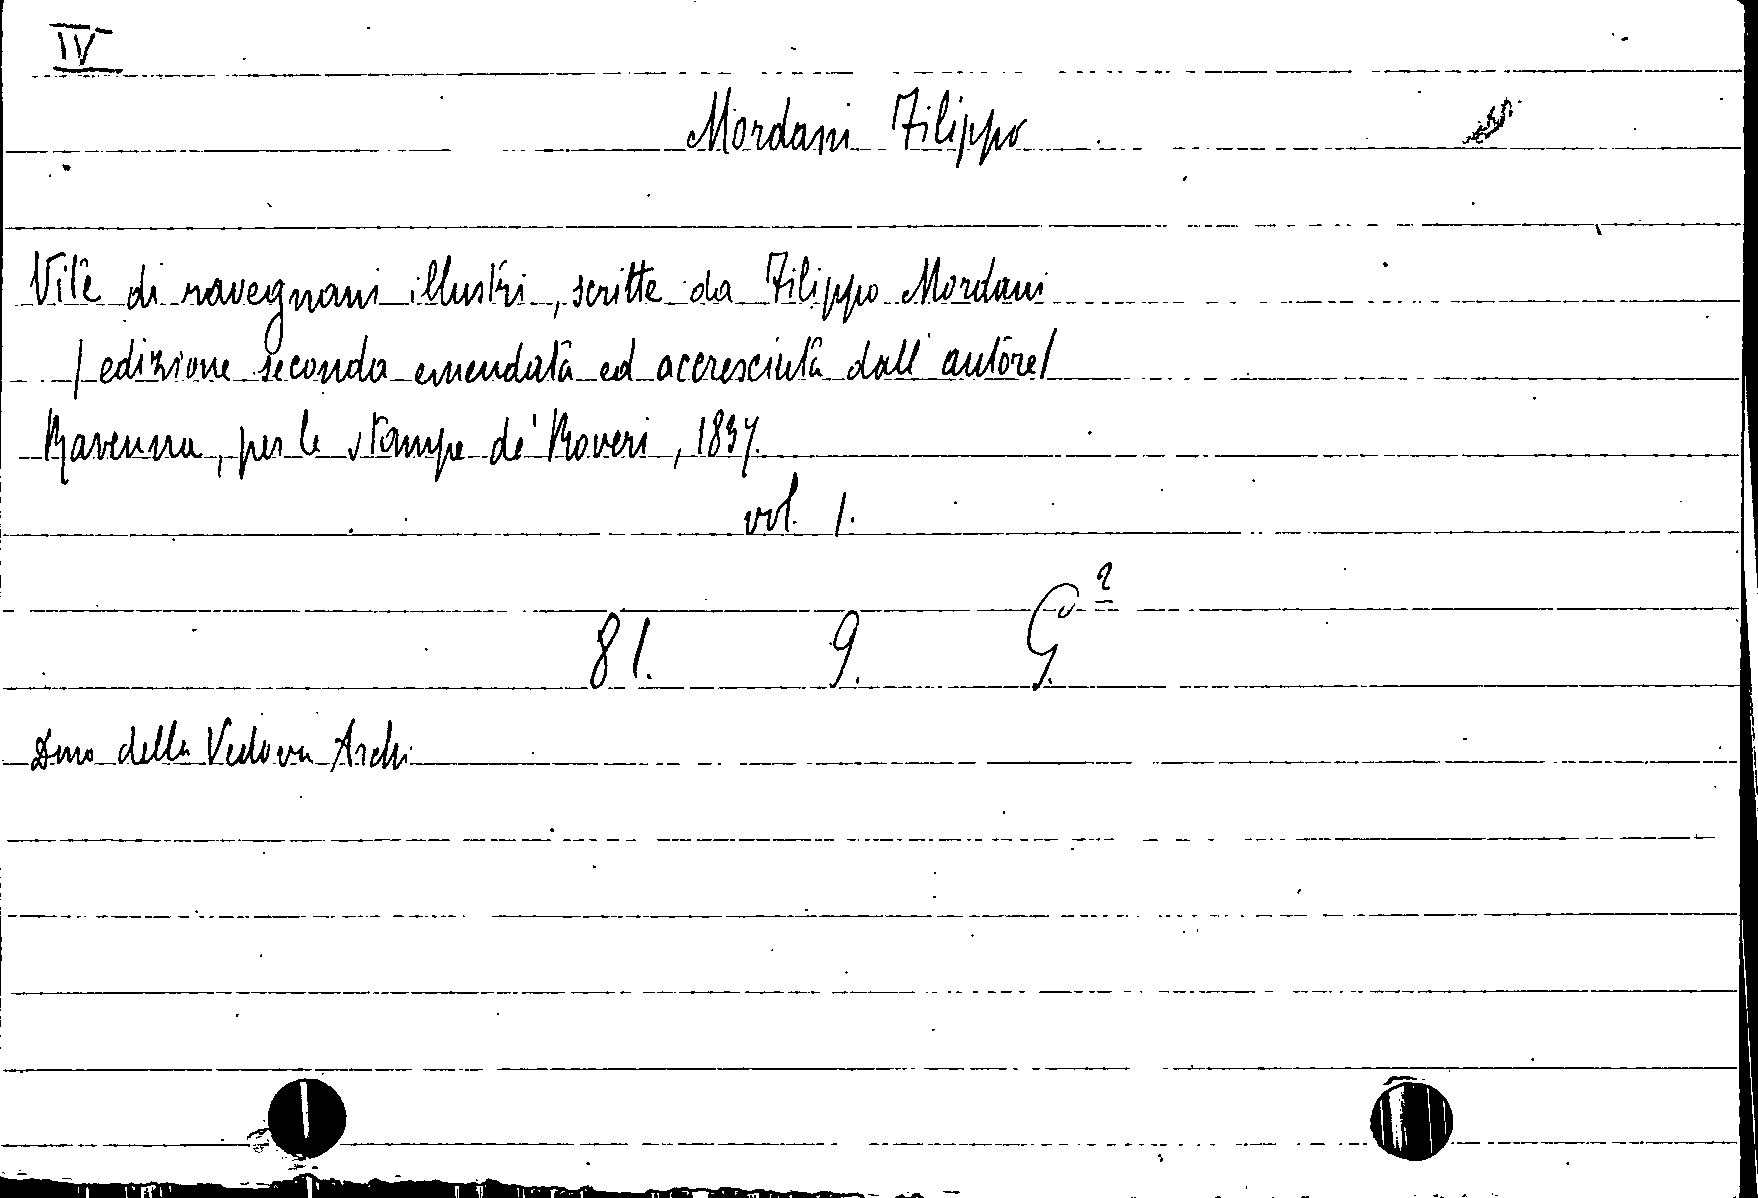 IV
Mordani Filippo
Vite di ravegnani illustri, scritte da Filippo Mordani
/ edizione seconda emendata ed accresciuta dall'autore/
Ravenna, per le stampe de' Roveri, 1837.
vol. 1.
81. 9. G²
Dno della Vedova Archi